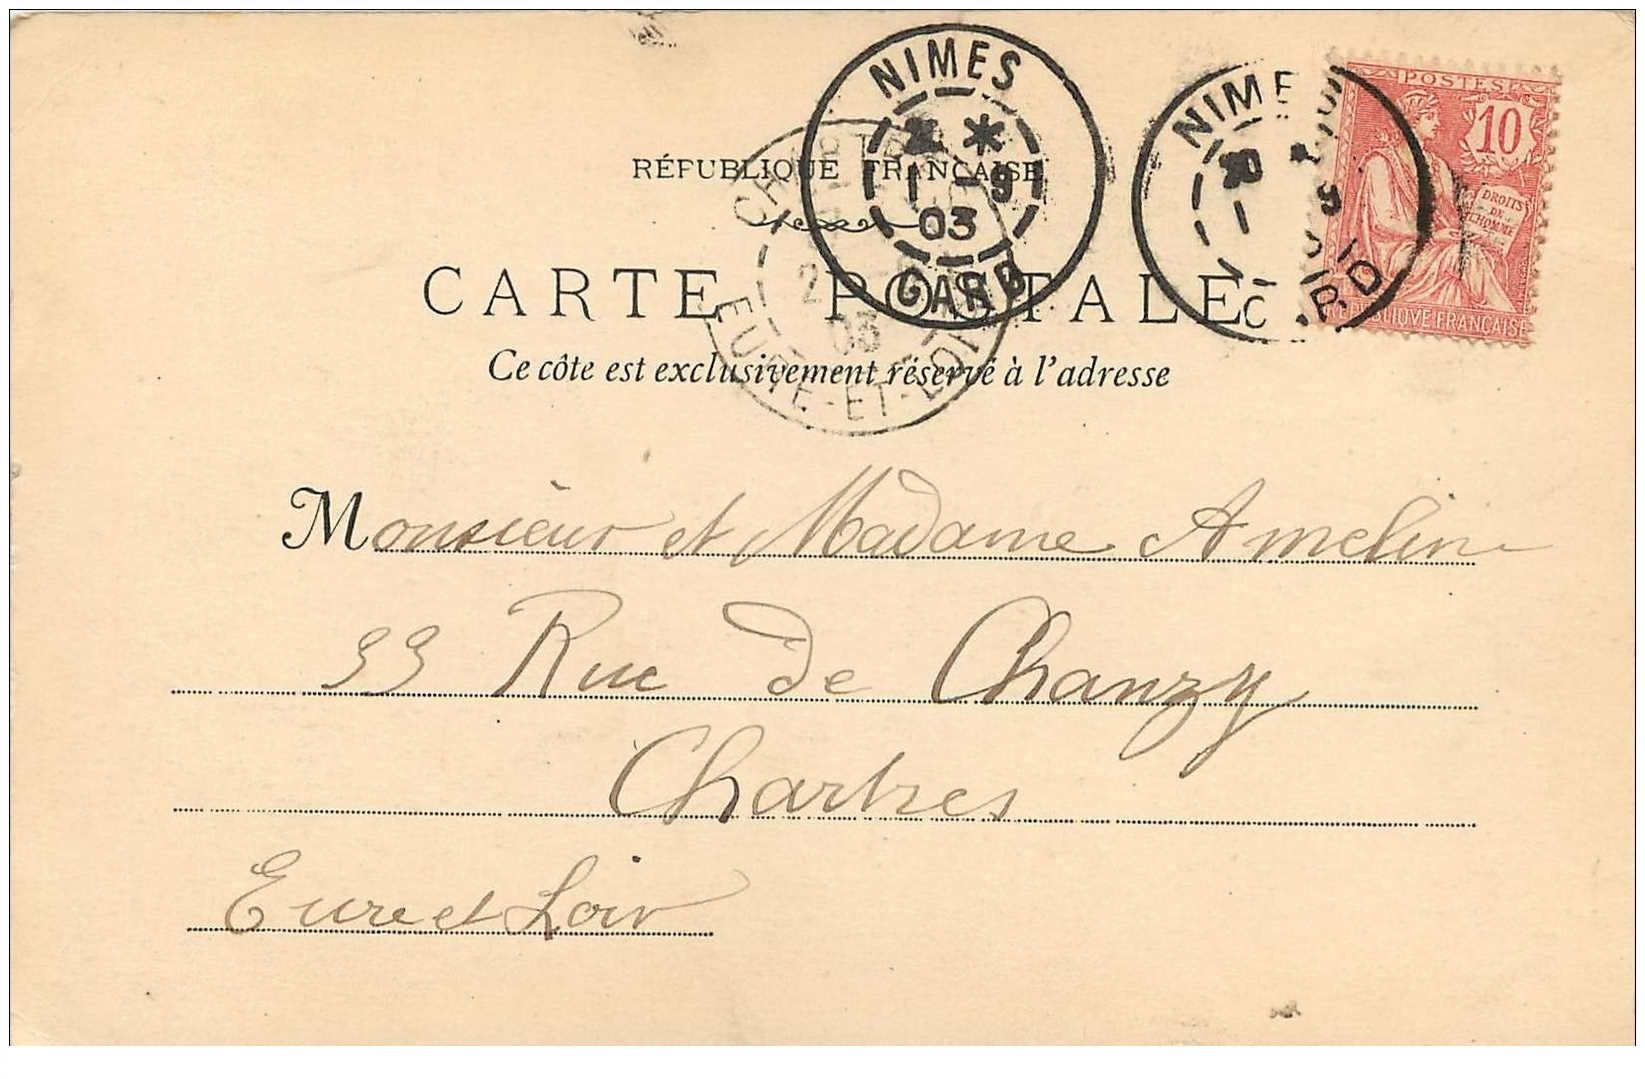 NIMES
1 -9
03
GARD
NIMES
POSTES
10
DROITS
DE
L'HOMME
REPUBLIQVE FRANÇAISE
RÉPUBLIQUE FRANÇAISE
CARTE POSTALE
03
EURE-ET-LOIR
Ce côte est exclusivement réservé à l'adresse
Monsieur et Madame Amelin
33 Rue de Chanzy
Chartres
Eure et Loir